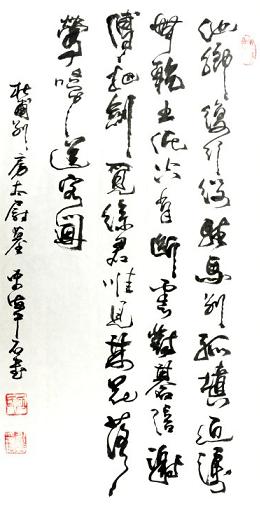 他鄉復行役駐馬別孤墳近淚
無乾土低空有斷雲對碁陪謝
傅把劍覓徐君唯見林花落
鶯啼送客聞
杜甫別房太尉墓 書